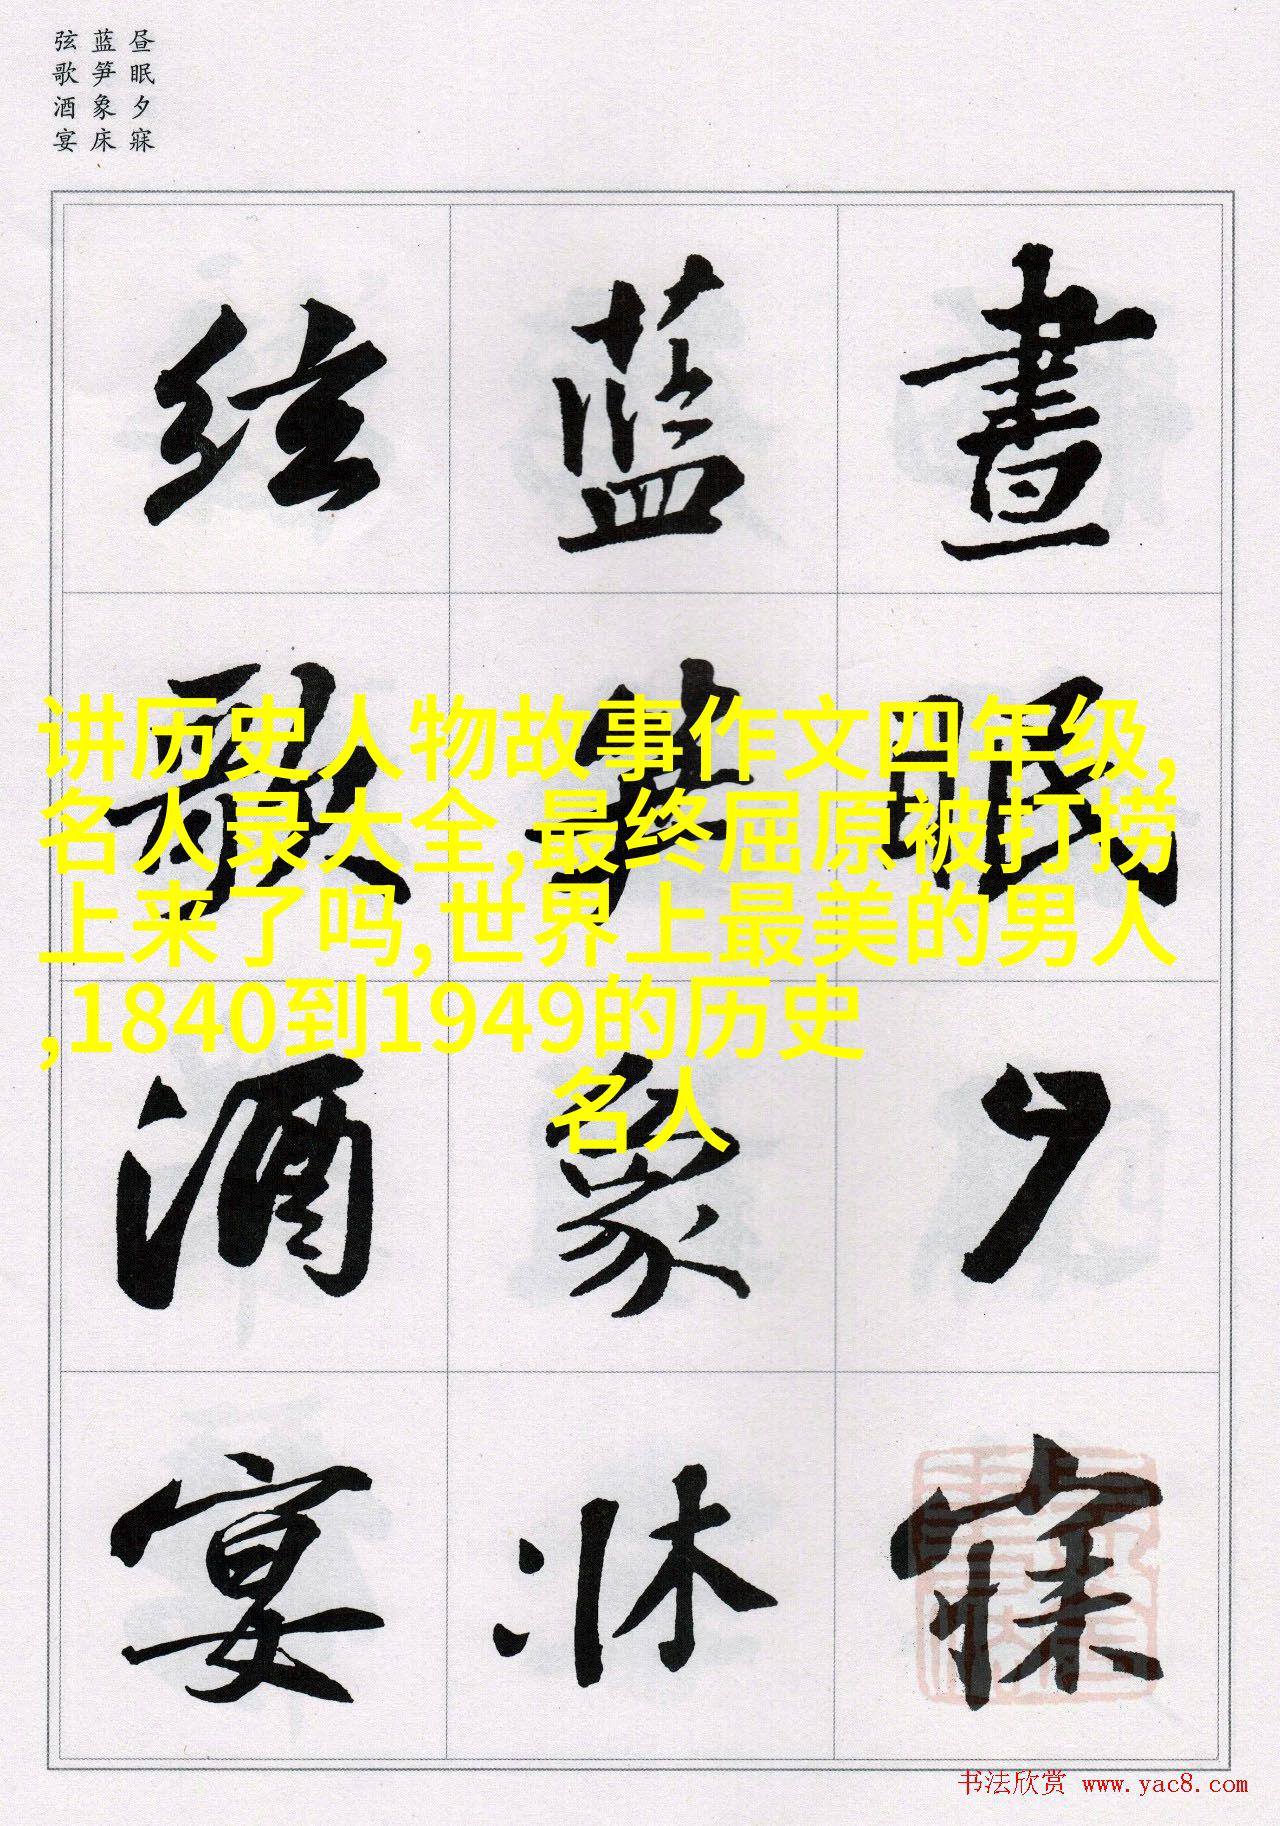 昼眠夕寐
蓝笋象床
弦歌酒宴
晝眠夕寐
蓝笋象牀
弦歌酒宴
讲历史人物故事作文四年级,
名人录大全,最终屈原被打捞
上来了吗,世界上最美的男人
,1840到1949的历史
名人
书法欣赏 www.yac8.com